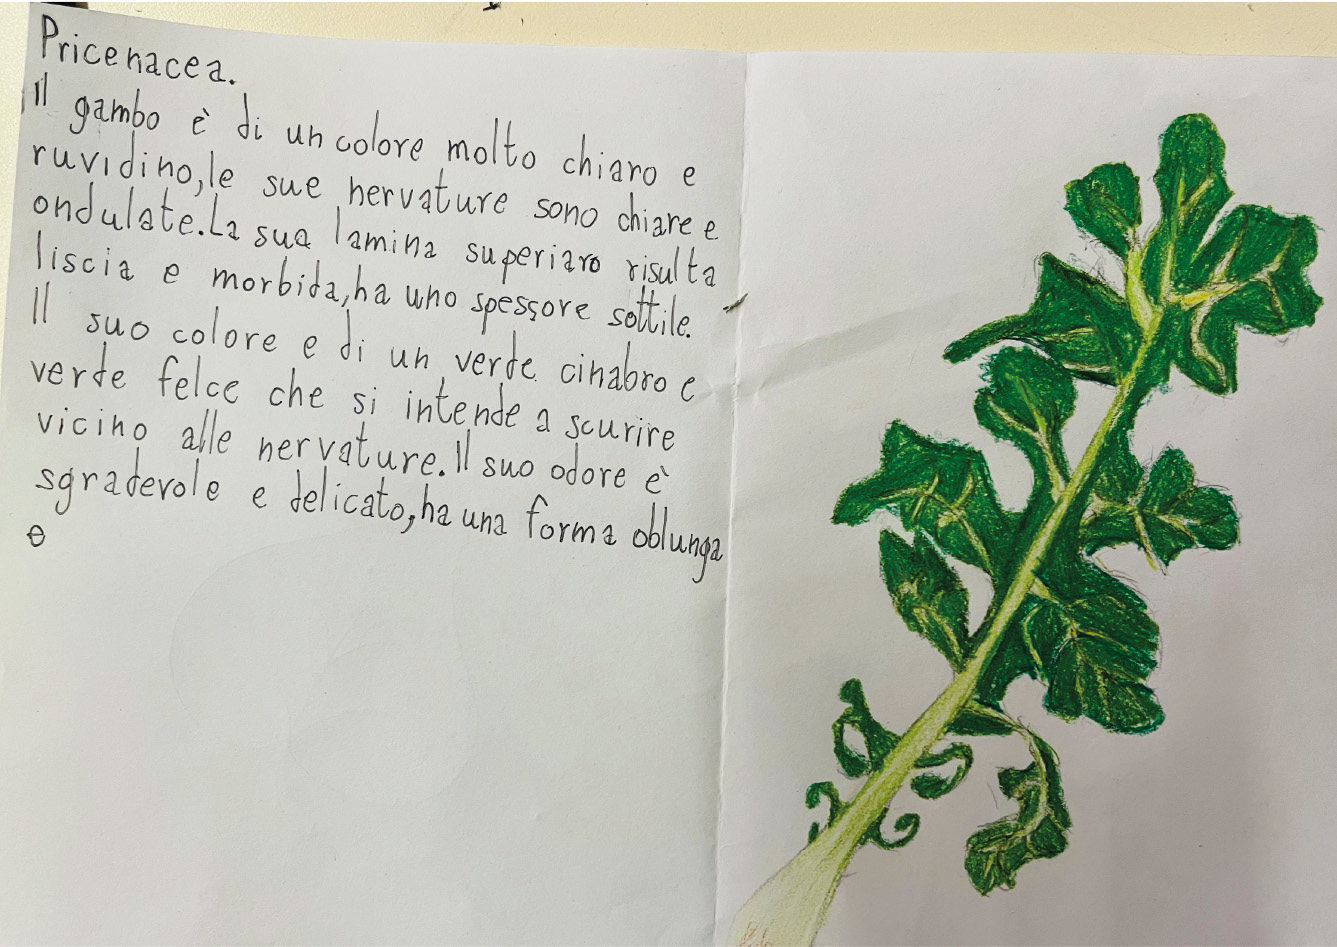 Pricenacea.
Il gambo è di un colore molto chiaro e
ruvidino, le sue nervature sono chiare e
ondulate. La sua lamina superiaro risulta
liscia e morbida, ha uno spessore sottile.
Il suo colore e di un verde cinabro e
verde felce che si intende a scurire
vicino alle nervature. Il suo odore è
sgradevole e delicato, ha una forma oblunga
e